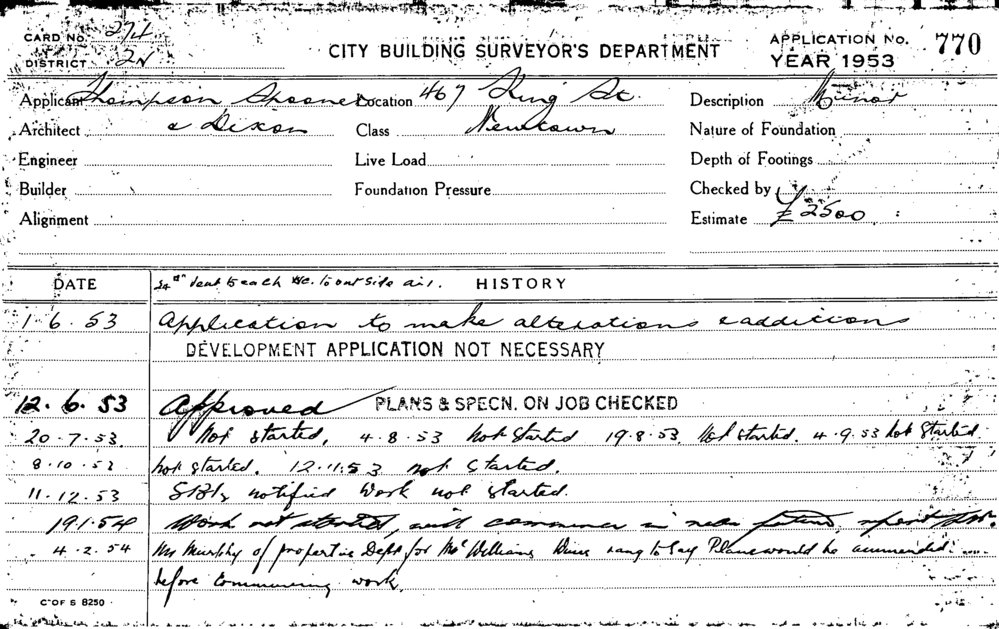 CARD No. 274
DISTRICT 2N
CITY BUILDING SURVEYOR'S DEPARTMENT
APPLICATION No. 770
YEAR 1953
Applicant Thompson Spooner
Location 467 King St.
Description Minor
Architect & Dixon
Class Newtown
Nature of Foundation
Engineer
Live Load
Depth of Footings
Builder
Foundation Pressure
Checked by
Alignment
Estimate £2500
DATE
24" vent to each WC. to outside air. HISTORY
1.6.53 Application to make alterations & additions
DEVELOPMENT APPLICATION NOT NECESSARY
12.6.53 Approved PLANS & SPECN. ON JOB CHECKED
20.7.53. Not started. 4.8.53 Not Started 19.8.53. Not started. 4.9.53 Not Started.
8.10.53 Not started. 12.11.53 not started.
11.12.53 notified Work not started.
19.1.54 Work not started, will commence in near future
4.2.54 Mr Murphy of properties Dept for McWilliams Wines rang to say Plans would be ammended
before commencing work.
C OF S 8250